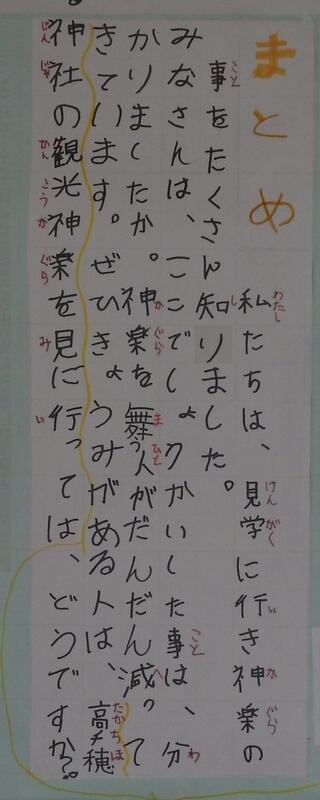 まとめ
私たちは、見学に行き神楽の
事をたくさん知りました。
みなさんは、ここでしょうかいした事は、分
かりましたか。神楽を舞う人がだんだん減って
きています。ぜひきょうみがある人は、高千穂
神社の観光神楽を見に行っては、どうですか?